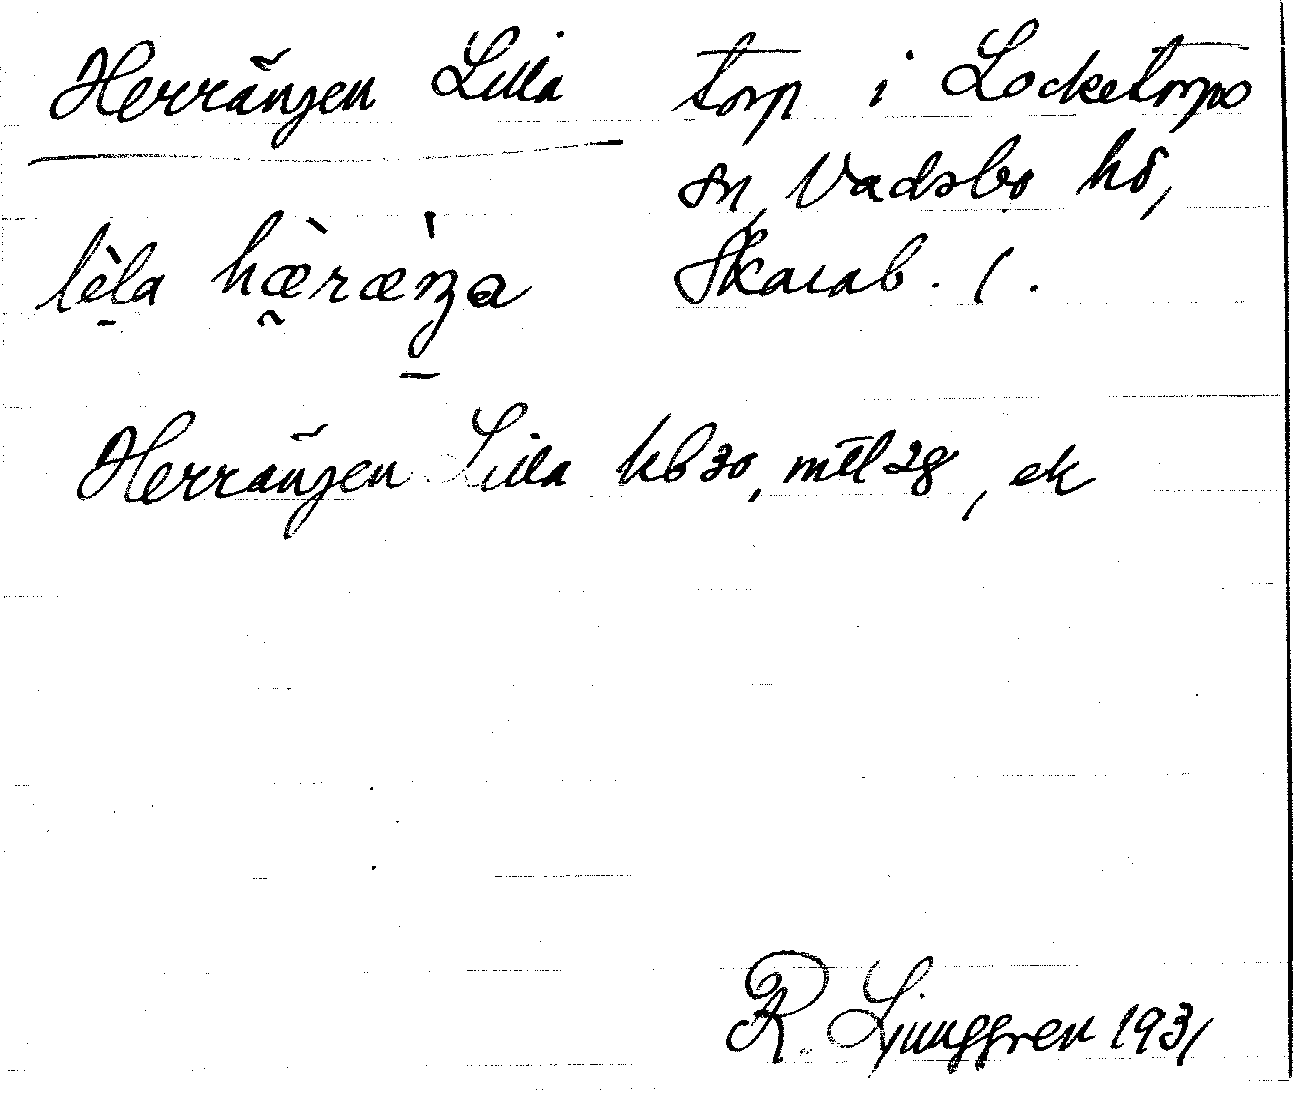 Herrängen Lilla torp i Locketorps
sn, Vadsbo hd,
Skarab. l.
lèla hæ̀ræ̀ŋa
Herrängen Lilla kb 30, mtl 28, ek
R. Ljunggren 1931